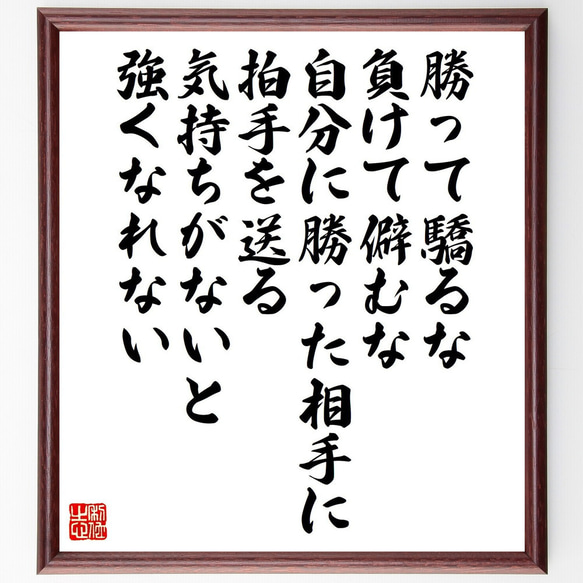 勝って驕るな
負けて僻むな
自分に勝った相手に
拍手を送る
気持ちがないと
強くなれない